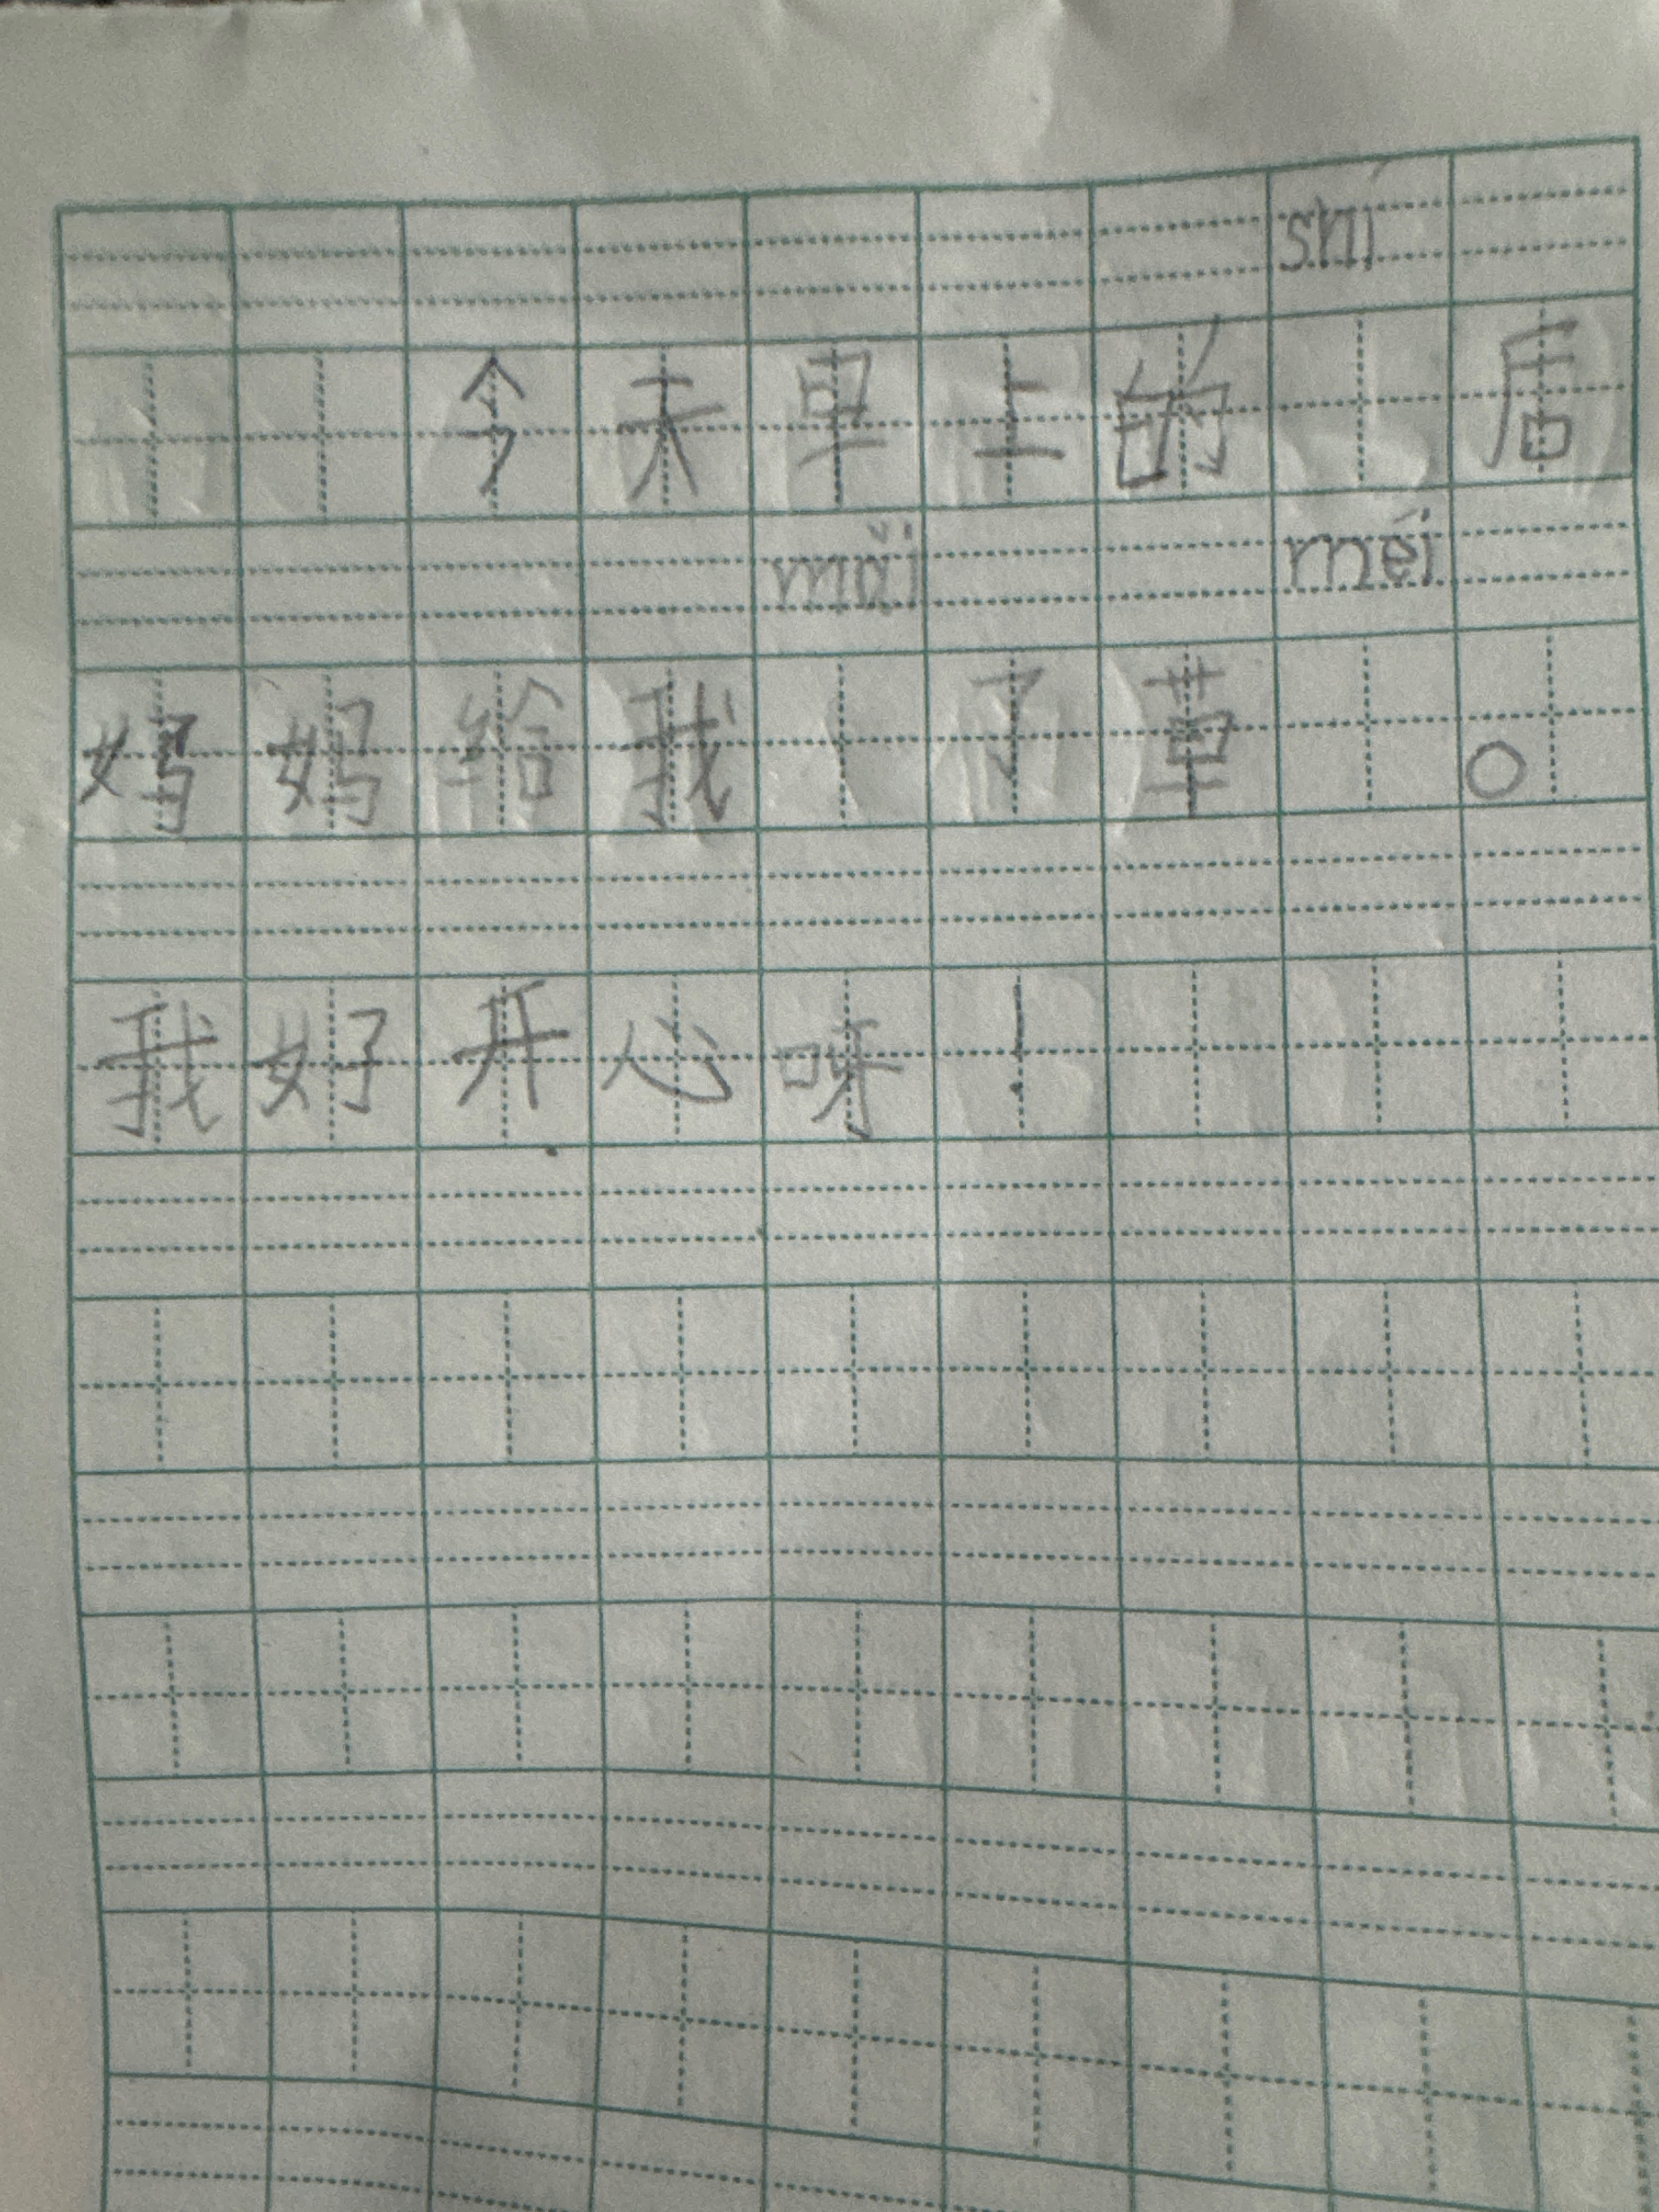 今天早上的 shí 后
妈妈给我 mǎi 了草 méi 。
我好开心呀！